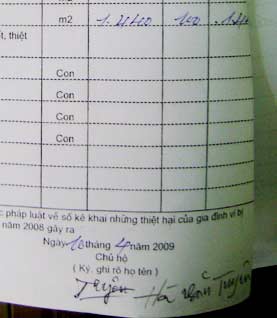 m2 1.440 100
t, thiệt
Con
Con
Con
Con
c pháp luật về số kê khai những thiệt hại của gia đình vị bị
năm 2008 gây ra
Ngày 10 tháng 4 năm 2009
Chủ hộ
( Ký, ghi rõ họ tên )
Tuyên Hà Văn Tuyên